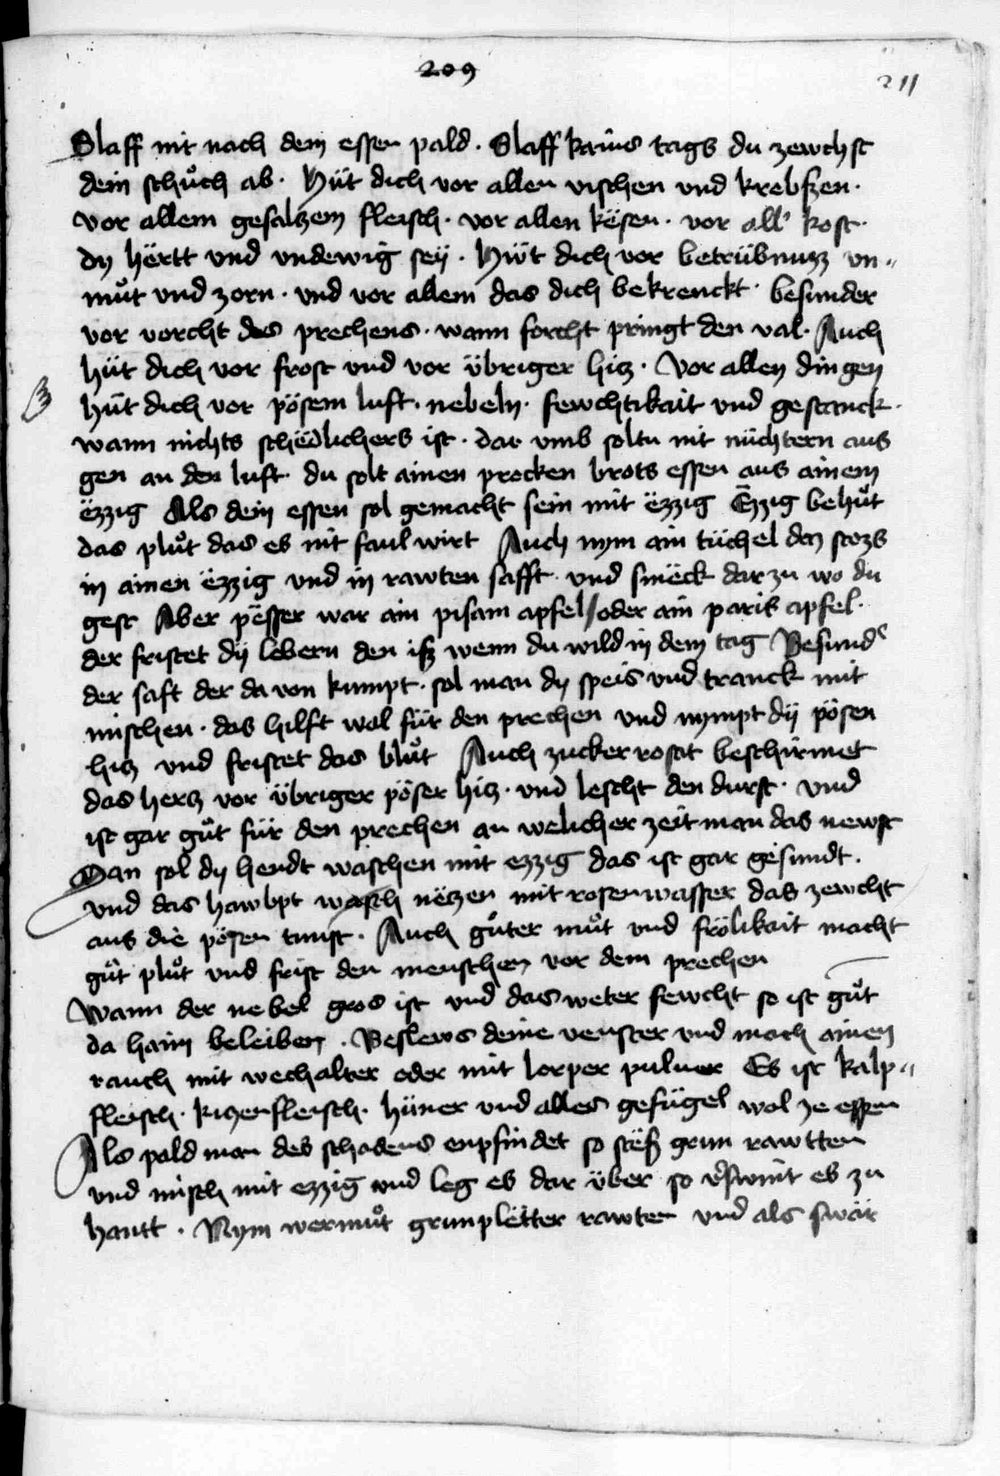 209
211
Slaff nit nach dem essen pald · Slaff kains tags du zewchst
dein schůch ab · Hüt dich vor allen vischen und krebszen ·
vor allem gesalzem fleisch · vor allen kësen · vor all' kost ·
dy hërtt vnd vndewig seÿ · Hüt dich vor betrübnuzz vn„
můt vnd zorn · vnd vor allem das dich bekrenckt · besunder
vor vorcht des prechens · wann forcht pringt den val · Auch
hüt dich vor frost vnd vor übriger hicz · Vor allen dingen
hüt dich vor pösem luft · nebeln · fewchtikait vnd gestanck ·
wann nichts schëdlichers ist · dar vmb soltu nit nüchtern aus
gen an den luft · du solt ainen procken brots essen aus ainem
ëzzig Als dein essen sol gemacht sein mit ëzzig Ezzig behůt
das plůt das es nit faul wirt Auch nym ain tüchel den stozs
in ainen ëzzig vnd in rawten safft · vnd smëck dar zu wo du
gest Aber pësser war ain pisam apfel / oder ain paris apfel ·
der fristet dÿ lebern den isz wenn du wild in dem tag Besund'
der saft der da von kumpt · sol man dy speis vnd tranck mit
mischen · das hilft wol für den prechen vnd nympt dÿ pösen
hicz vnd fristet das blůt Auch zucker rosat beschirmet
das hercz vor übriger pöser hicz · vnd lescht den durst · vnd
ist gar gůt für den prechen an welicher zeit man das newst
Man sol dy hendt waschen mit ezzig das ist gar gesundt ·
vnd das hawbpt wasch neczen mit rosenwasser das zewcht
aus die pösen tunst · Auch gůter můt vnd frölikait macht
gůt plůt vnd frist den menschen vor dem prechen
Wann der nebel gros ist vnd das weter fewcht so ist gůt
da haim beleiben · Beslews deine venster vnd mach ainen
rauch mit wechalter oder mit lorper puluer Es ist kalp„
fleisch · kiczenfleisch · hüner vnd alles gefügel wol ze essen
Als pald man des schadens enpfindet so stësz grun rawtten
vnd misch mit ezzig vnd leg es dar über so v'swint es zu
hantt · Nym wermůt grunpletter rawten vnd als swär